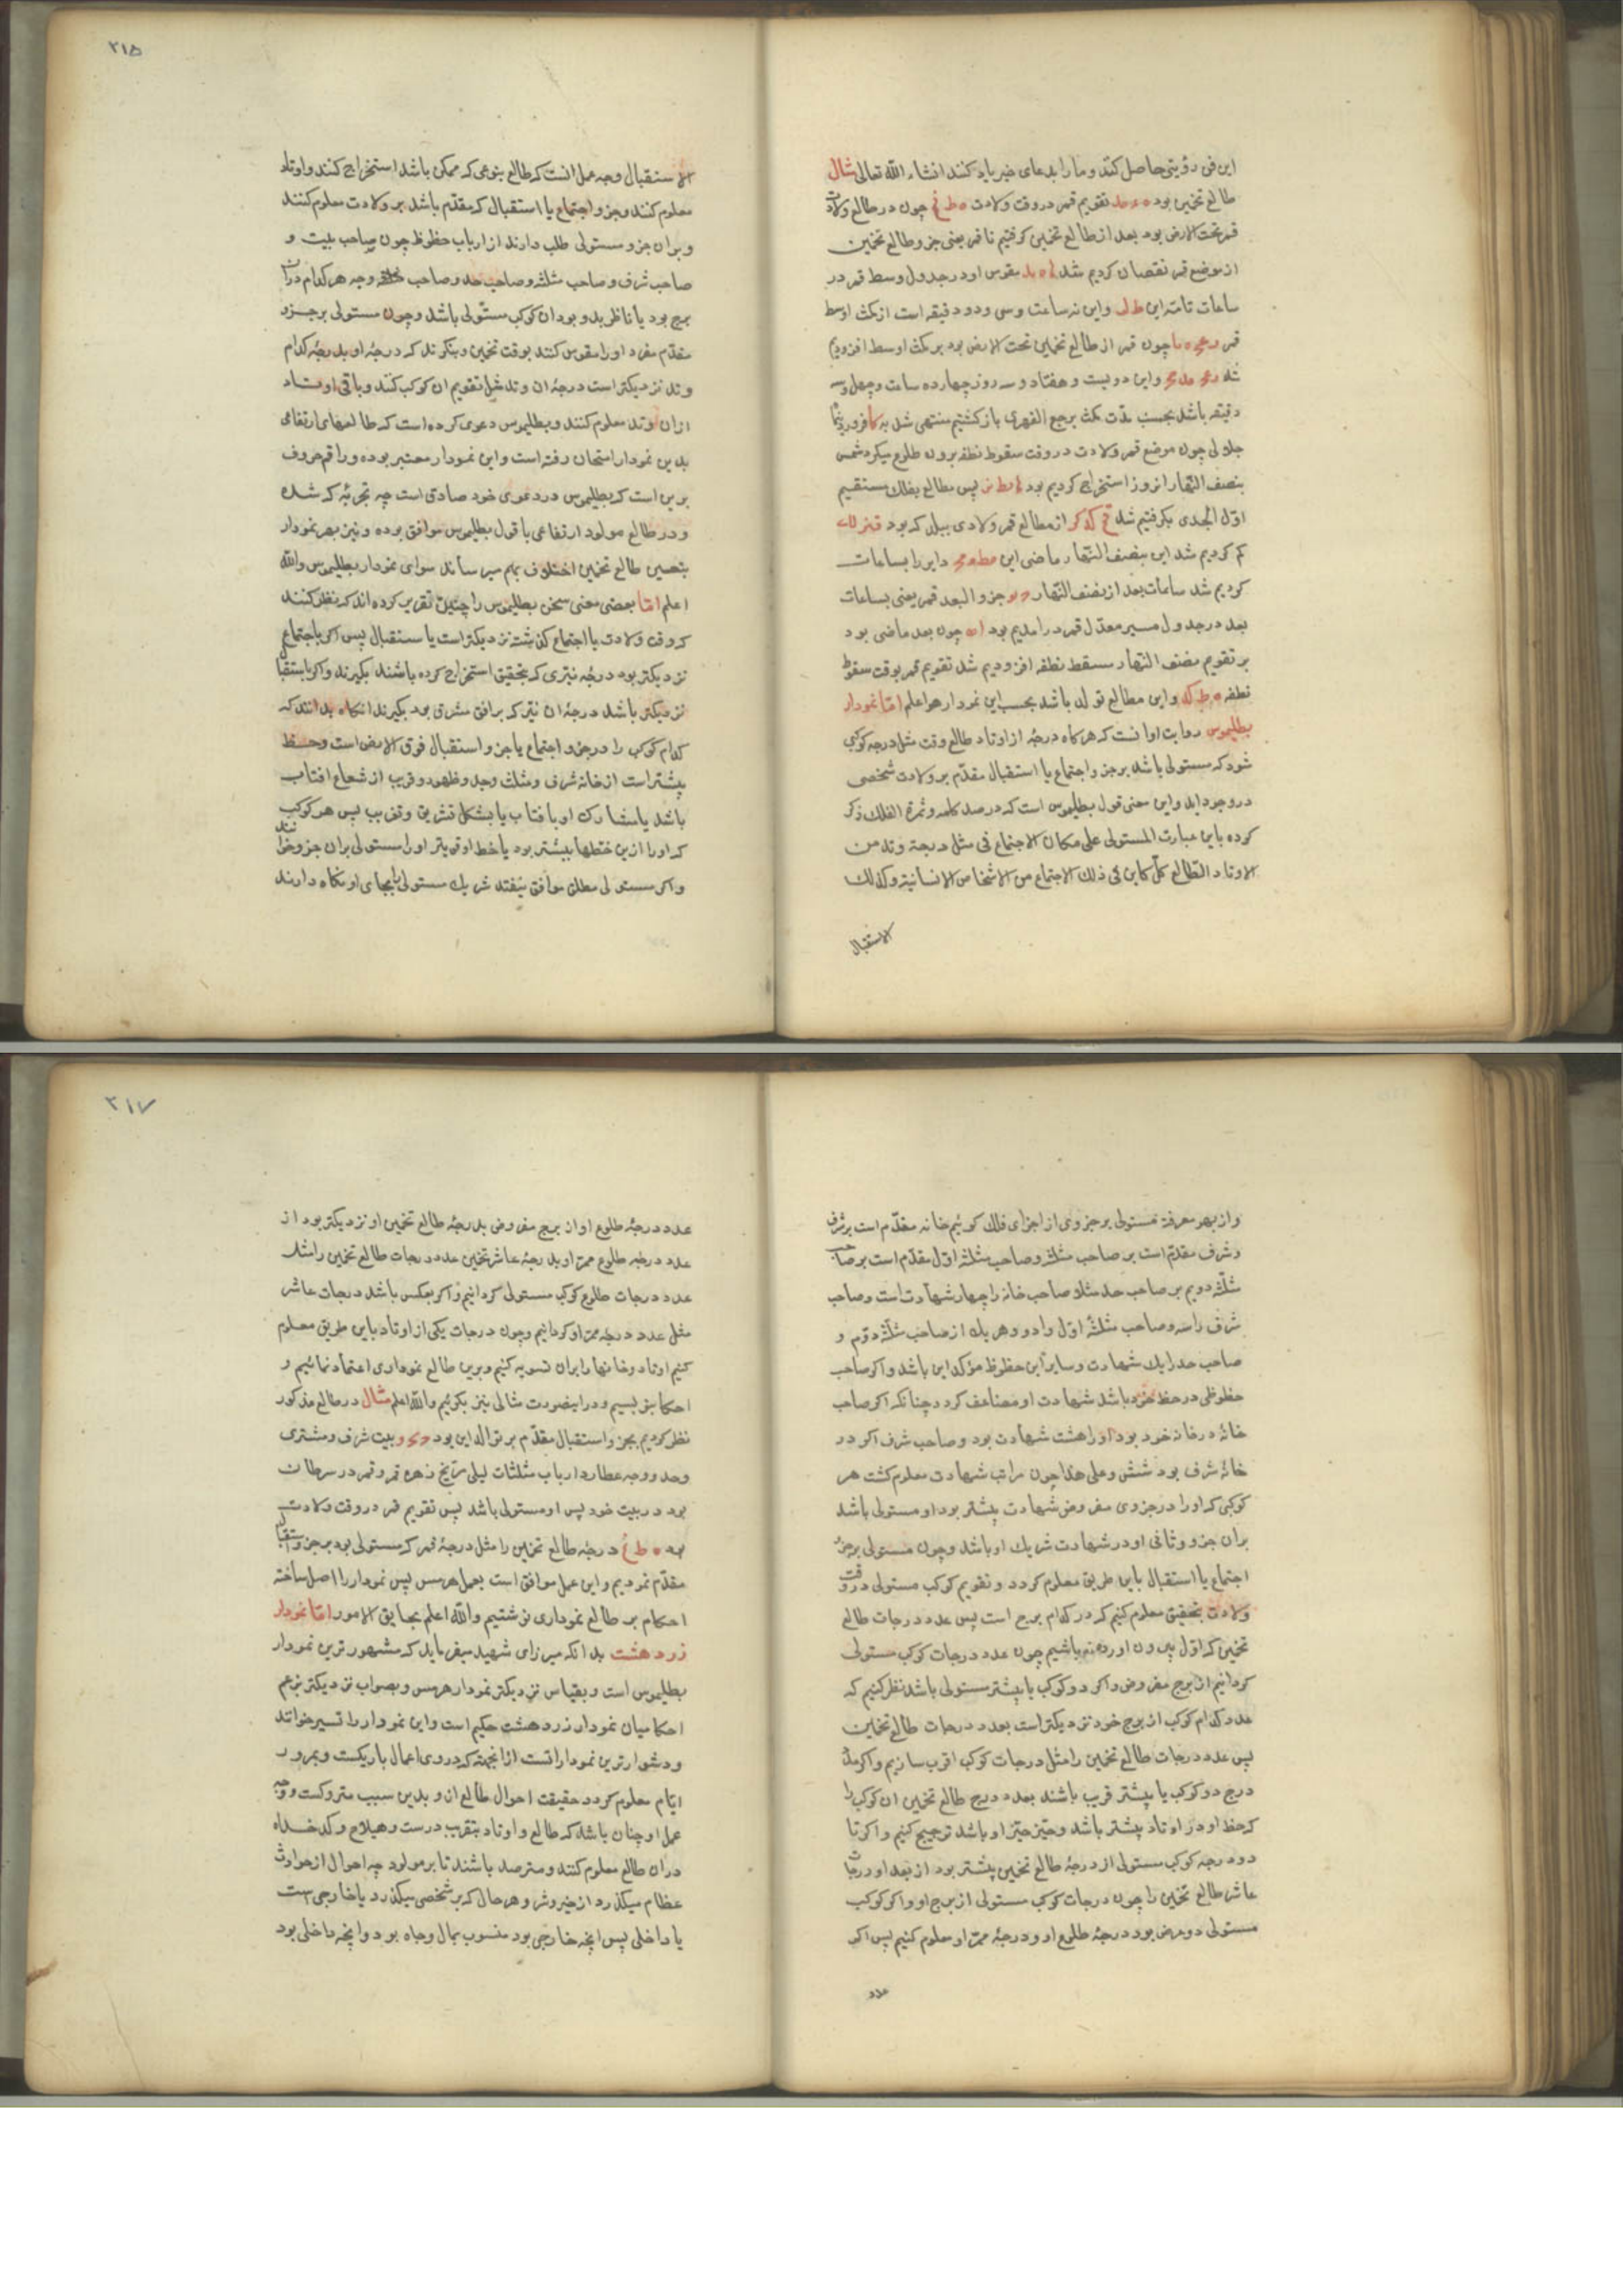 این فن رؤیتی حاصل کند و ما را بدعای خیر یاد کنند انشاء الله تعالی مثال
طالع تخمین بود تقویم قمر در وقت ولادت چون در طالع ولادت
قمر تحت الارض بود بعد از طالع تخمین گرفتیم تا قمر یعنی جزو طالع تخمین
از موضع قمر نقصان کردیم شد بقوس او در جدول وسط قمر در
ساعات تامه این و این نه ساعت و سی و دو دقیقه است از مکث اوسط
قمر چون قمر از طالع تخمین تحت الارض بود بر مکث اوسط افزودیم
شد و این دویست و هفتاد و سه روز چهارده ساعت و چهل و سه
دقیقه باشد بحسب مدت مکث برجع القهری بازگشتیم منتهی شد به
جلالی چون موضع قمر ولادت در وقت سقوط نطفه برون طلوع میکرد شمس
بنصف النهار انروز استخراج کردیم بود پس مطالع بفلک مستقیم
اول الجدی بگرفتیم شد از مطالع قمر ولادی ببلد که بود
کم کردیم شد این بنصف النهار ماضی این دایر را بساعات
کردیم شد ساعات بعد از نصف النهار جزو البعد قمر یعنی بساعات
بعد در جدول مسیر معدل قمر در آمدیم بود چون بعد ماضی بود
بر تقویم نصف النهار مسقط نطفه افزودیم شد تقویم قمر بوقت سقوط
نطفه و این مطالع تولد باشد بحسب این نمودار هو اعلم اما نمودار
بطلیموس روایت اوانست که هرگاه درجه از اوتاد طالع وقت مثل درجه کوکبی
شود که مستولی باشد بر جزو اجتماع یا استقبال مقدم بر ولادت شخصی
در وجود اید و این معنی قول بطلیموس است که در صد کلمه و ثمرة الفلک ذکر
کرده باین عبارت المستولی علی مکان الاجتماع فی مثل درجة وتد من
الاوتاد الطالع کل کاین فی ذلک الاجتماع من الاشخاص الانسانیة وکذلک
الاستقبال
۲۱۵
الاستقبال وجه عمل انست که طالع بنوعی که ممکن باشد استخراج کنند و اوتاد
معلوم کنند و جزو اجتماع یا استقبال که مقدم باشد بر ولادت معلوم کنند
و بران جزو مستولی طلب دارند از ارباب حظوظ چون صاحب بیت و
صاحب شرف و صاحب مثلثه و صاحب حد و صاحب وجه هر کدام در ان
برج بود یا ناظر بدو بود ان کوکب مستولی باشد و چون مستولی بر جزو
مقدم مفرد او را مقوس کنند بوقت تخمین و بنگرند که درجه او بدرجه کدام
وتد نزدیکتر است درجه ان وتد مثل تقویم ان کوکب کنند و باقی اوتاد
از ان وتد معلوم کنند و بطلیموس دعوی کرده است که طالعهای ارتفاعی
بدین نمودار امتحان رفته است و این نمودار معتبر بوده و راقم حروف
برین است که بطلیموس در دعوی خود صادق است چه تجربه که شده
و در طالع مولود ارتفاعی با قول بطلیموس موافق بوده و نیز بهر نمودار
بتحسین طالع تخمین اختلاف بهم میرسانند سوای نمودار بطلیموس و الله
اعلم اما بعضی معنی سخن بطلیموس را چنین تقریر کرده اند که نظر کنند
که وقت ولادت با اجتماع گذشته نزدیکتر است یا استقبال پس اگر باجتماع
نزدیکتر بود درجه نیری که بتحقیق استخراج کرده باشند بگیرند و اگر باستقبال
نزدیکتر باشد درجه ان نیر که بر افق مشرق بود بگیرند انگاه بدانند که
کدام کوکب را در جزو اجتماع یا جزو استقبال فوق الارض است و حظ
بیشتر است از خانه شرف و مثلث وحد و ظهور و قریب از شعاع افتاب
باشد یا مشارک او با افتاب یا بشکل تشریق و تغریب پس هر کوکب
که او را ازین خطها بیشتر بود یا خط او قویتر او را مستولی بران جزو خوانند
و اگر مستولی مطلق موافق نیفتد شریک مستولی را بجای او نگاه دارند
و از بهر معرفة مستولی بر جزوی از اجزای فلک گوئیم خانه مقدم است بر شرف
و شرف مقدم است بر صاحب مثلثه و صاحب مثلثه اول مقدم است بر صاحب
مثلثه دویم بر صاحب حد مثلا صاحب خانه را چهار شهادت است و صاحب
شرف را سه و صاحب مثلثه اول را دو و هر یک از صاحب مثلثه دوم و
صاحب حد را یک شهادت و سایر این حظوظ مؤکد این باشد و اگر صاحب
حظوظی در حظ خود باشد شهادت او مضاعف گردد چنانکه اگر صاحب
خانه در خانه خود بود او را هشت شهادت بود و صاحب شرف اگر در
خانه شرف بود شش و علی هذا چون مراتب شهادت معلوم گشت هر
کوکبی که او را در جزوی مفروض شهادت بیشتر بود او مستولی باشد
بران جزو و ثانی او در شهادت شریک او باشد و چون مستولی بر جزو
اجتماع یا استقبال باین طریق معلوم گردد و تقویم کوکب مستولی در وقت
ولادت بتحقیق معلوم کنیم که در کدام برج است پس عدد درجات طالع
تخمین که اول بیرون اورده باشیم چون عدد درجات کوکب مستولی
گردانیم از برج مفروض و اگر دو کوکب یا بیشتر مستولی باشد نظر کنیم که
عدد کدام کوکب از برج خود نزدیکتر است بعدد درجات طالع تخمین
پس عدد درجات طالع تخمین را مثل درجات کوکب اقرب سازیم و اگر مثل
درج دو کوکب یا بیشتر قریب باشند بعدد درج طالع تخمین ان کوکب را
که حظ او در اوتاد بیشتر باشد و حیز حیز او باشد ترجیح کنیم و اگر تا
دو درجه کوکب مستولی از درجه طالع تخمین بیشتر بود از بعد او درجات
عاشر طالع تخمین را چون درجات کوکب مستولی از برج او و اگر کوکب
مستولی دو عرض بود درجه طلوع او و درجه ممر او معلوم کنیم پس اگر
عدد
۲۱۷
عدد درجه طلوع او از برج مفروض بدرجه طالع تخمین او نزدیکتر بود از
عدد درجه طلوع ممر او بدرجه عاشر تخمین عدد درجات طالع تخمین را مثل
عدد درجات طلوع کوکب مستولی گردانیم و اگر بعکس باشد درجات عاشر
مثل عدد درجه ممر او گردانیم و چون درجات یکی از اوتاد باین طریق معلوم
کنیم اوتاد و خانها را بران تسویه کنیم و برین طالع نموداری اعتماد نمائیم و
احکام بنویسیم و در اینصورت مثالی نیز بگوئیم و الله اعلم مثال در طالع مذکور
نظر کردیم بجزو استقبال مقدم بر تولد این بود بیت شرف و مشتری
وحد و وجه عطارد ارباب مثلثات لیلی مریخ زهره قمر و قمر در سرطان
بود در بیت خود پس او مستولی باشد پس تقویم قمر در وقت ولادت
بود درجه طالع تخمین را مثل درجه قمر که مستولی بود بر جزو استقبال
مقدم نمودیم و این عمل موافق است بعمل هرمس پس نمودار را اصل ساخته
احکام بر طالع نموداری نوشتیم و الله اعلم بحقایق الامور اما نمودار
زردهشت بدانکه میرزای شهید میفرماید که مشهورترین نمودار
بطلیموس است و بقیاس نزدیکتر نمودار هرمس و بصواب نزدیکتر بزعم
احکامیان نمودار زردهشت حکیم است و این نمودار را تسییر خوانند
و دشوارترین نمودارانست از انجهة که در وی اعمال باریکست و بمرور
ایام معلوم گردد حقیقت احوال طالع ان و بدین سبب متروکست و وجه
عمل او چنان باشد که طالع و اوتاد بتقریب درست و هیلاج و کدخداه
دران طالع معلوم کنند و مترصد باشند تا بر مولود چه احوال از حوادث
عظام میگذرد از خیر و شر و هر حال که بر شخصی میگذرد یا خارجی است
یا داخلی پس انچه خارجی بود منسوب بمال و جاه بود و انچه داخلی بود